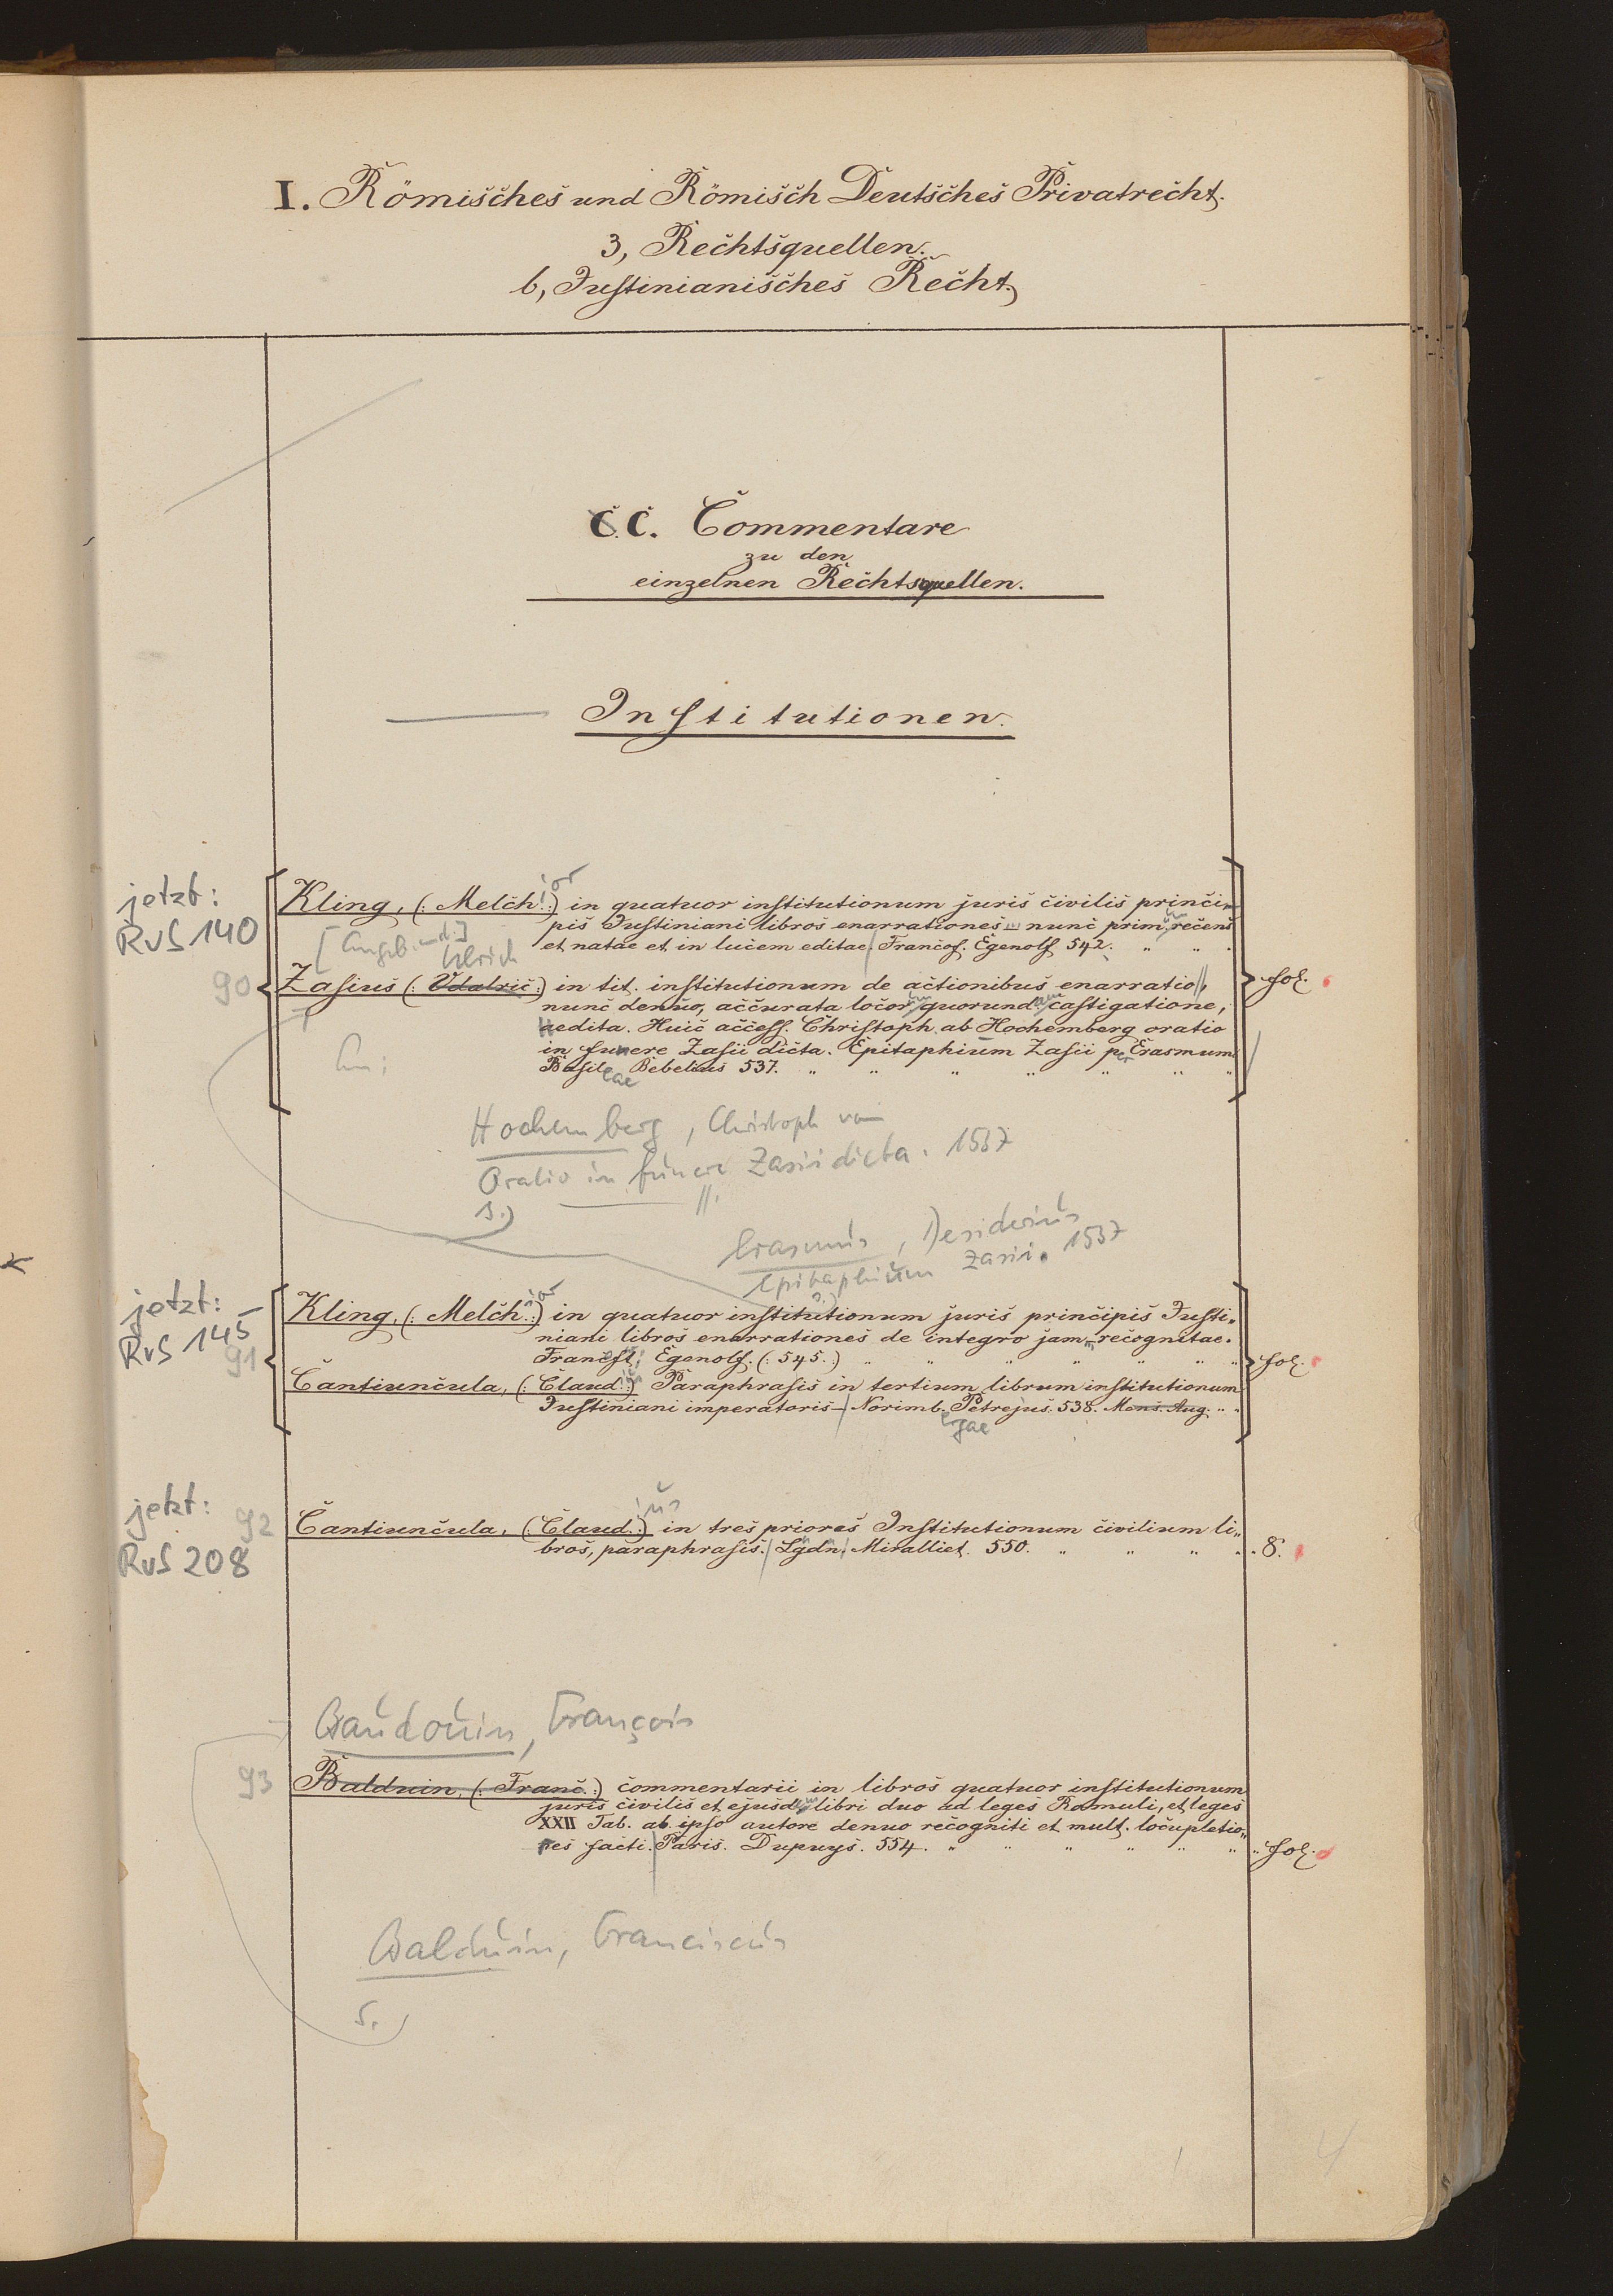 I. Römisches und Römisch Deutsches Privatrecht.
3, Rechtsquellen.
b, Justinianisches Recht.
C. C. Commentare
zu den
einzelnen Rechtsquellen.
Institutionen.
jetzt:
RvS 140
Kling, (: Melch. :) ior in quatuor institutionum juris civilis princi-
pis Justiniani libros enarrationes nunc prim. um recens
et natae et in lucem editae. Francof. Egenolf 542.
Ulrich
90
Zasius (: Udalric :) in tit. institutionum de actionibus enarratio,
nunc denuo, accurata locor. um quorund. am castigatione,
aedita. Huic access. Christoph. ab Hochemberg oratio
in funere Zasii dicta. Epitaphium Zasii per Erasmum.
Basileae Bebelius 537.
fol.
Hochemberg, Christoph von
Oratio in funere Zasii dicta. 1537
s.)
Erasmus, Desiderius
Epitaphium Zasii. 1537
s.)
jetzt:
RvS 145
91
Kling, (: Melch. :) ior in quatuor institutionum juris principis Justi-
niani libros enarrationes de integro jam recognitae.
Egenolf. (: 545. :)
fol.
Cantiuncula, (: Claud. :) ius Paraphrasis in tertium librum institutionum
Justiniani imperatoris – Norimb. ergae Petrejus. 538. Mens. Aug.
jetzt:
RvS 208
92
Cantiuncula, (: Claud. :) ius in tres priores Institutionum civilium li-
bros, paraphrasis. Lgdn. Miralliet. 550.
8.
Baudouin, François
93
Balduin, (: Franc. :) commentarii in libros quatuor institutionum
juris civilis et ejusd. em libri duo ad leges Romuli, et leges
XXII Tab. ab ipso autore denuo recogniti et mult. locupletio-
res facti. Paris. Dupuys. 554.
fol.
Balduin, Franciscus
s.)
4